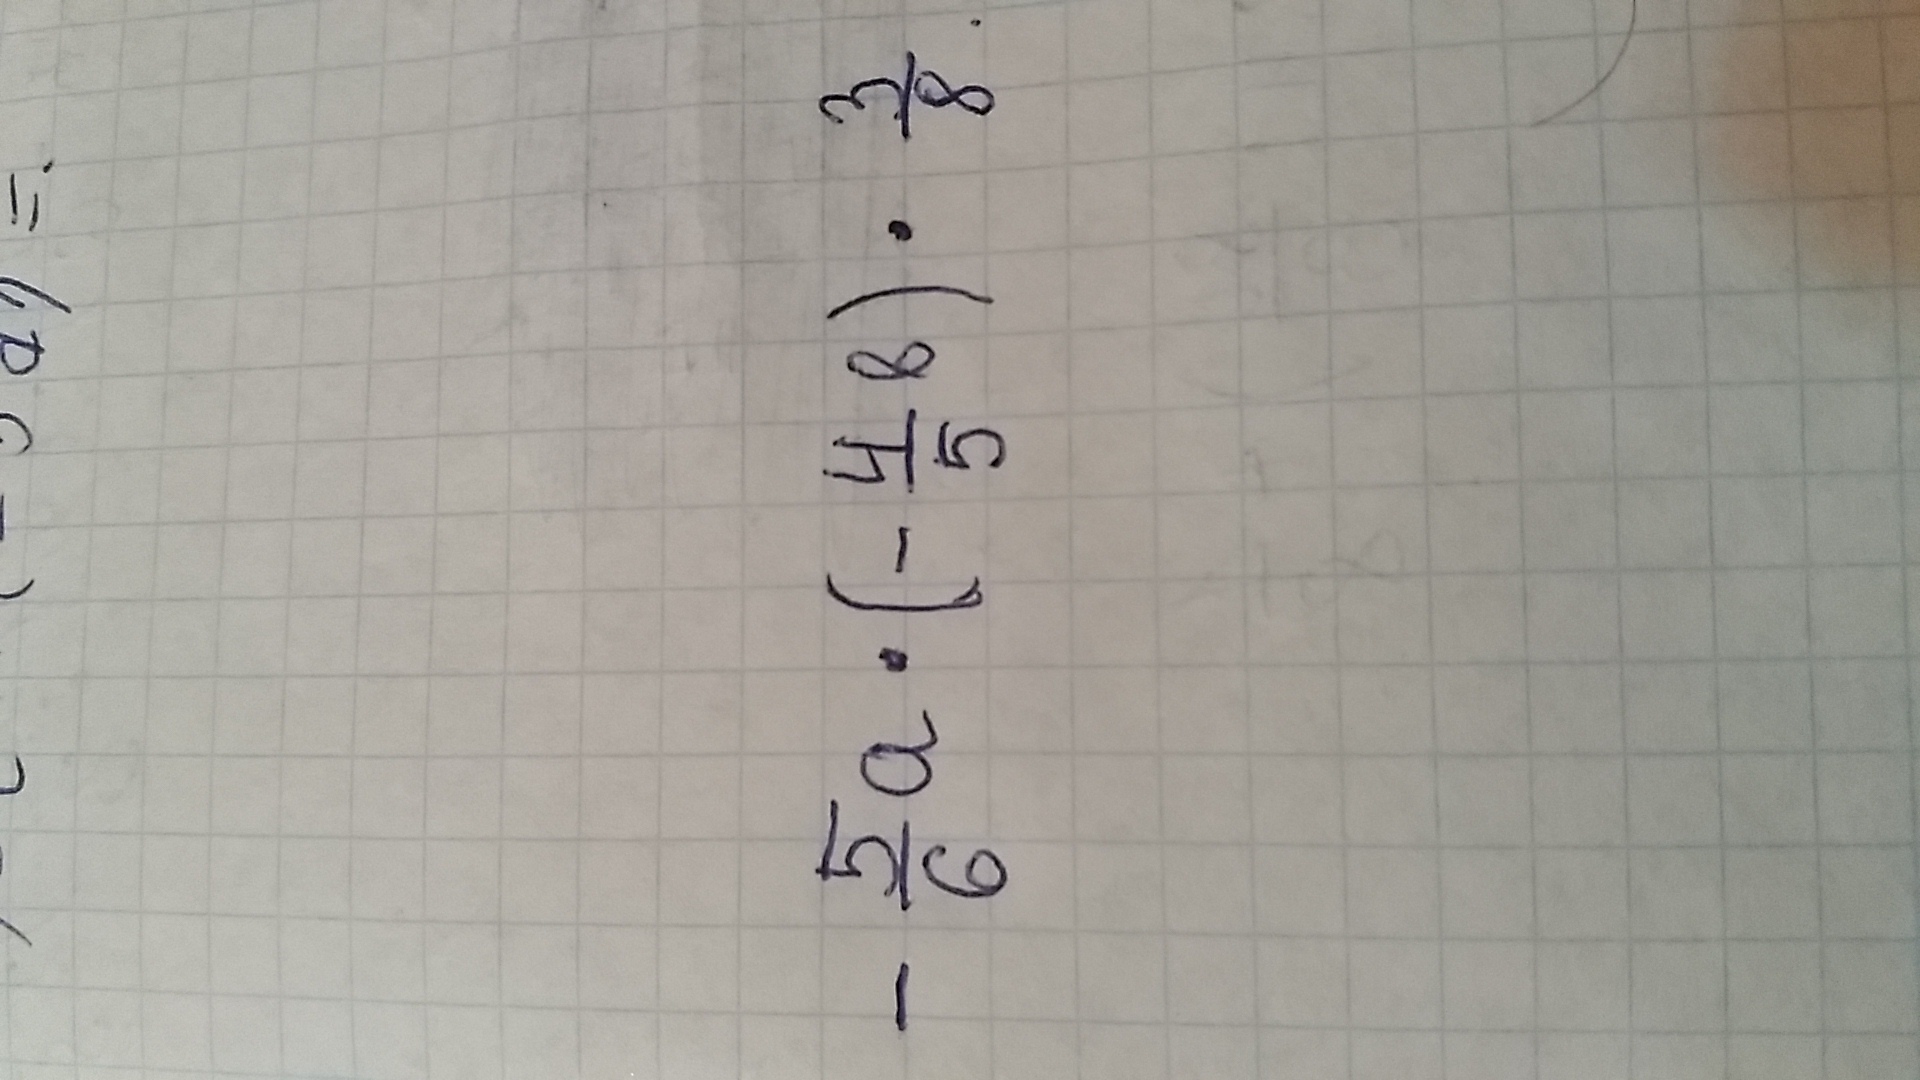 - 5/6 a · (- 4/5 в) · 3/8